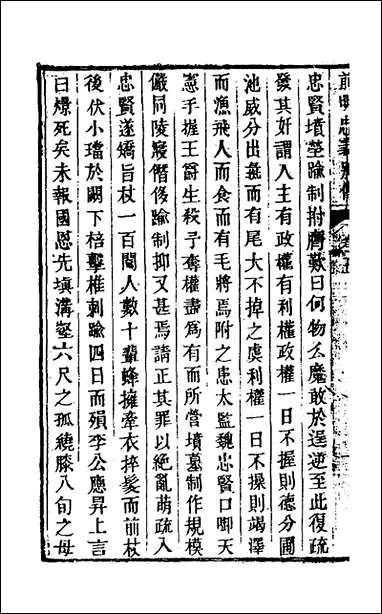 忠賢墳塋踰制拊膺歎曰何物么魔敢於逞逆至此復疏
發其奸謂人主有政權有利權政權一日不握則德分圃
池威分出彘而有尾大不掉之虞利權一日不操則竭澤
而漁飛人而食而有毛將焉附之患太監魏忠賢口啣天
憲手握王爵生殺予奪權盡為有而所營墳墓制作規模
儼同陵寢僭侈踰制抑又甚焉請正其罪以絶亂萌疏入
忠賢遂矯旨杖一百閹人數十輩蜂擁牽衣捽髮而前杖
後伏小璫於闕下棓擊椎刺踰四日而殞李公應昇上言
曰燝死矣未報國恩先填溝壑六尺之孤繞膝八旬之母